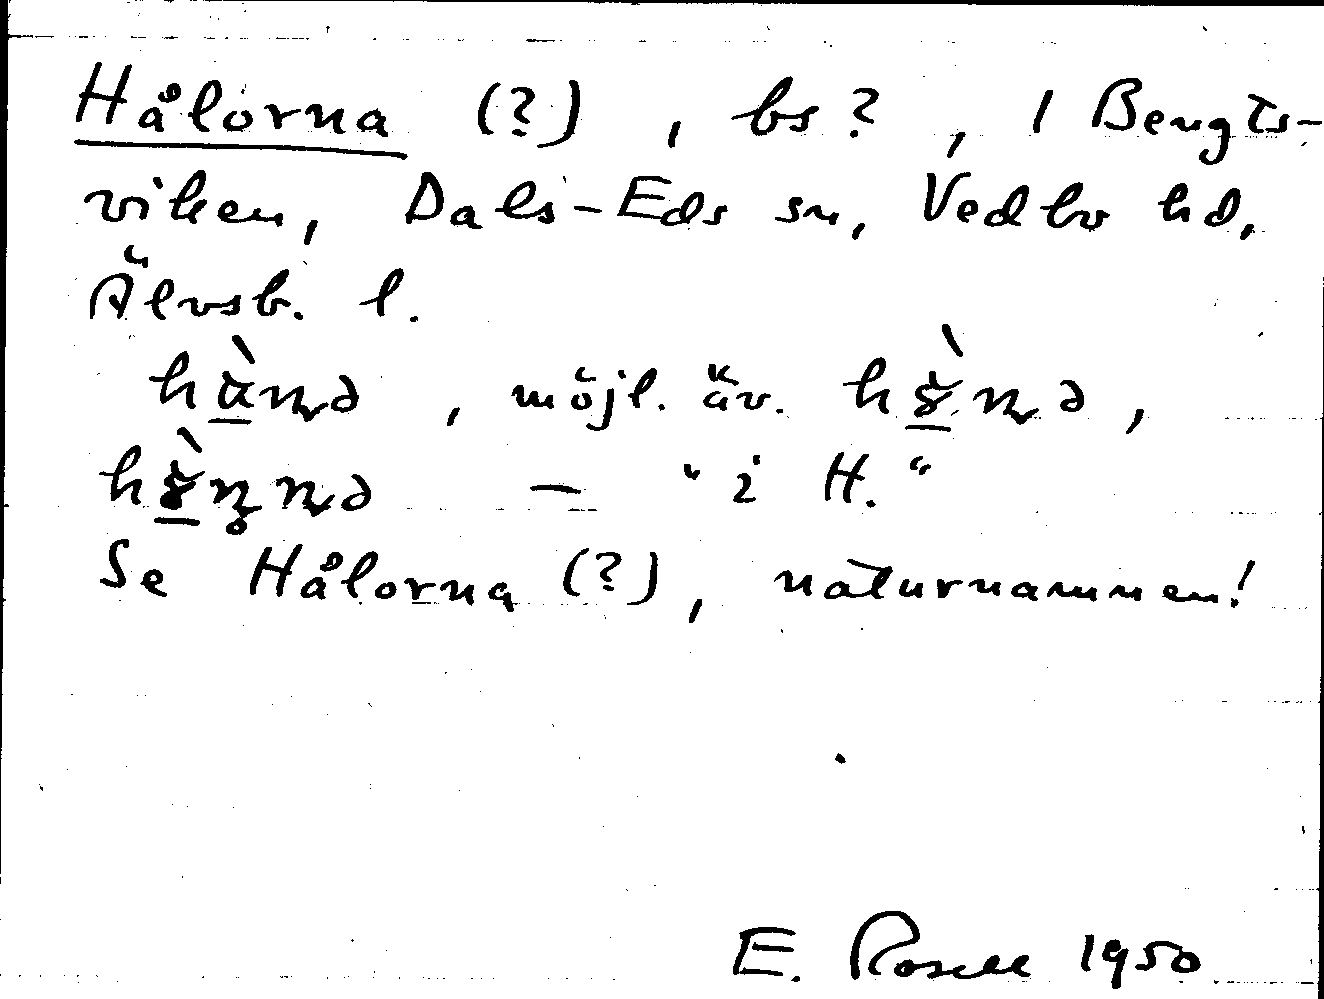 Hålorna (?), bs?, 1 Bengts-
viken, Dals-Eds sn, Vedbo hd,
Älvsb. l.
möjl. äv.
— "i H."
Se Hålorna (?), naturnamnen!
E. Rosell 1950